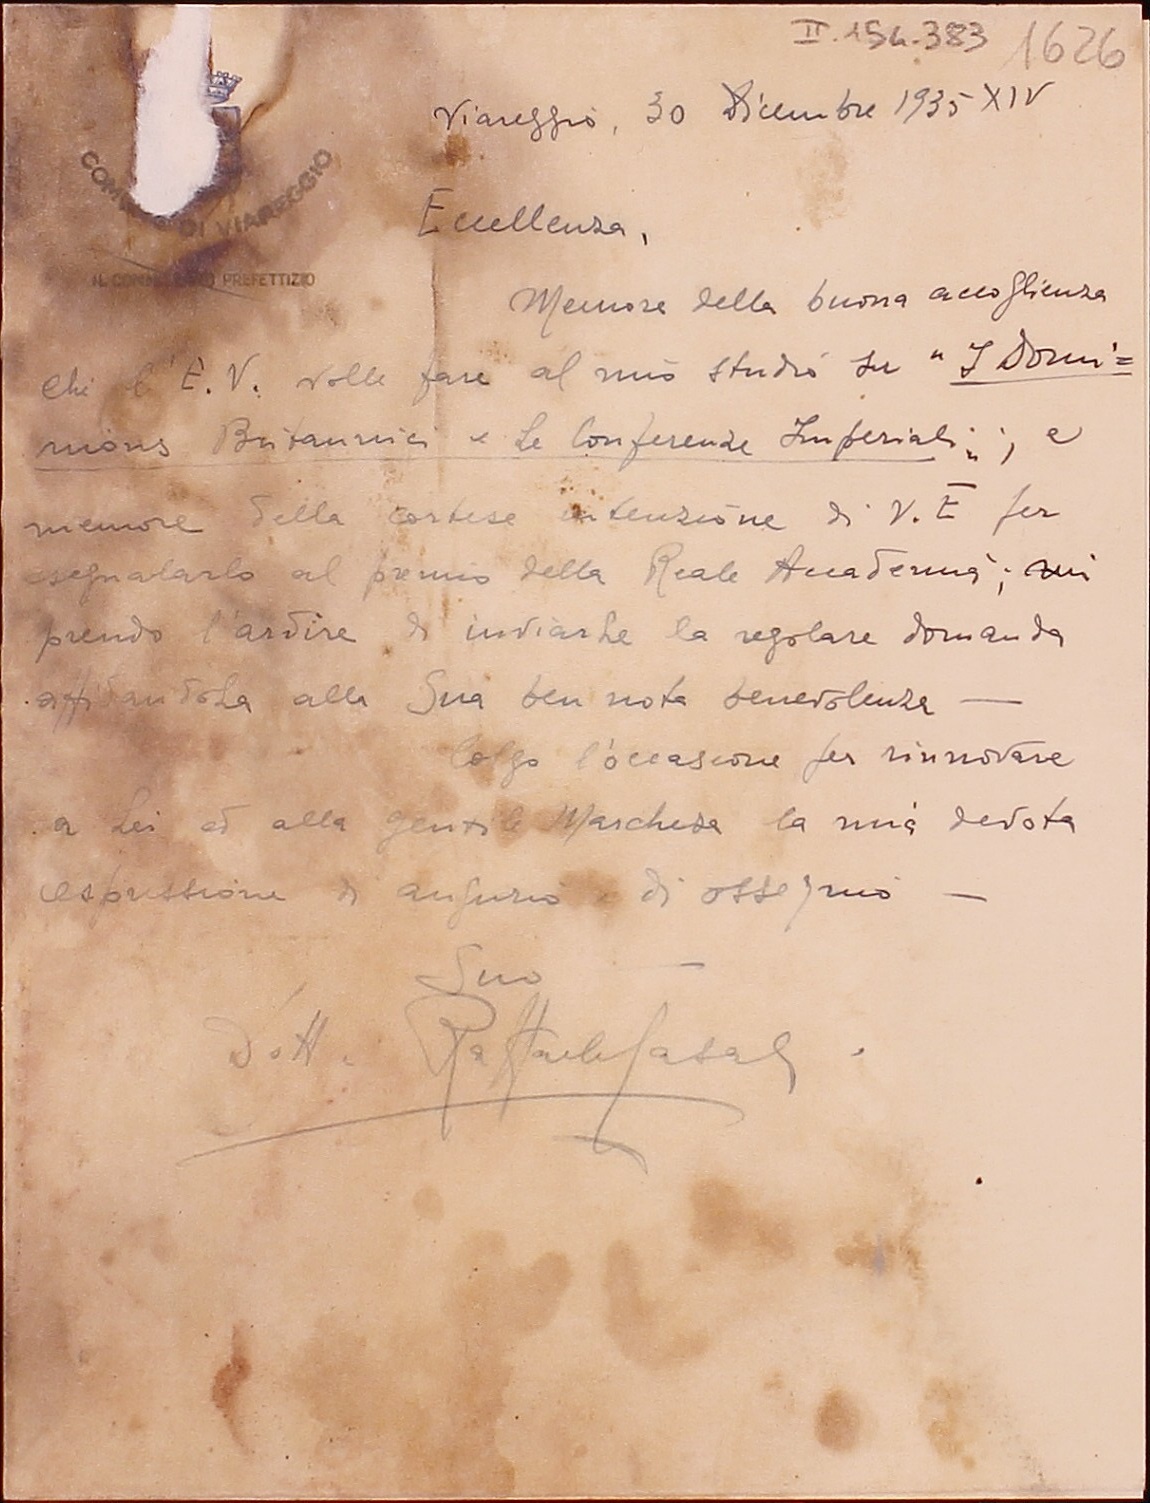 II.154.383 1626
Viareggio, 30 Dicembre 1935 XIV
COMUNE DI VIAREGGIO
IL COMMISSARIO PREFETTIZIO
Eccellenza,
Memore della buona accoglienza
che l'E.V. volle fare al mio studio su "I Domi=
nions Britannici e Le Conferenze Imperiali"; e
memore della cortese intenzione di V.E per
segnalarlo al premio della Reale Accademia; mi
prendo l'ardire di inviarLe la regolare domanda
affidandola alla Sua ben nota benevolenza —
Colgo l'occasione per rinnovare
a Lei ed alla gentile Marchesa la mia devota
espressione di augurio e di ossequio —
Suo —
Dott. Raffaele Casali.